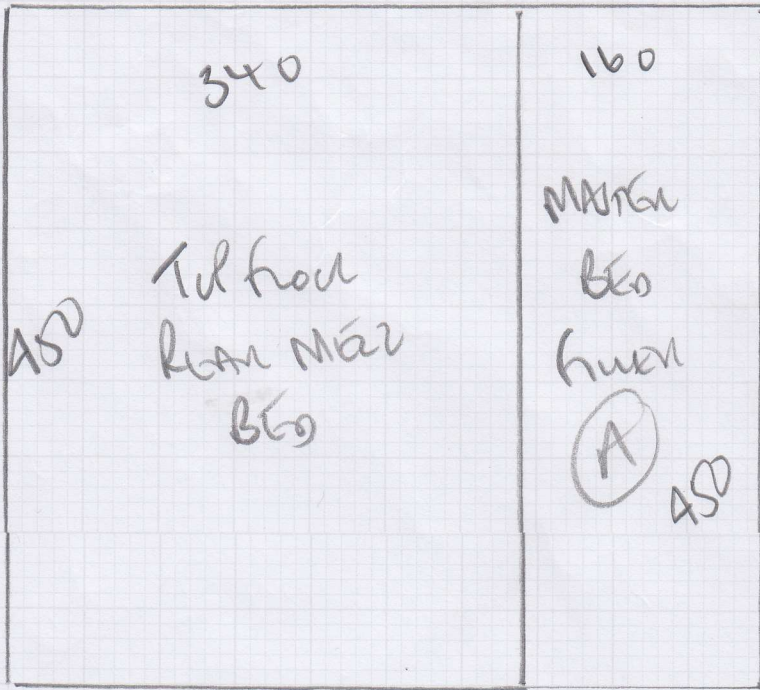 340
TOP FLOOR
REAR MEZZ
BED
450
160
MASTER
BED
FILLER
A
450